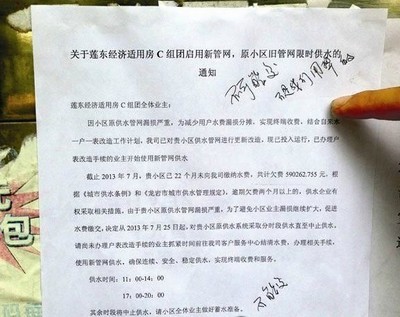 关于莲东经济适用房C组团启用新管网，原小区旧管网限时供水的
通知
莲东经济适用房C组团全体业主：
因小区原供水管网漏损严重，为减少用户水费漏损分摊，实现终端收费，结合自来水
一户一表改造工作计划，我司已对贵小区供水管网进行更新改造，现已投入运行，已办理户
表改造手续的业主开始使用新管网供水
截止2013年7月，贵小区已22个月未向我司缴纳水费，共计欠费590262.755元，根
据《城市供水条例》和《龙岩市城市供水管理规定》，逾期欠费两个月以上的，供水企业有
权采取相关措施，由于贵小区原供水管网漏损严重，为了避免小区业主漏损继续扩大，促进
水费缴交，决定从2013年7月25日起，对贵小区原供水系统采取分时段供水直至中止供水，
请尚未办理户表改造手续的业主抓紧时间前往我司客户服务中心结清水费，办理相关手续，
使用新管网供水，确保连续、安全、稳定供水，实现终端收费和服务。
供水时间：11：00-14：00
17：00-20：00
其余时段将中止供水，请小区全体业主做好蓄水准备。